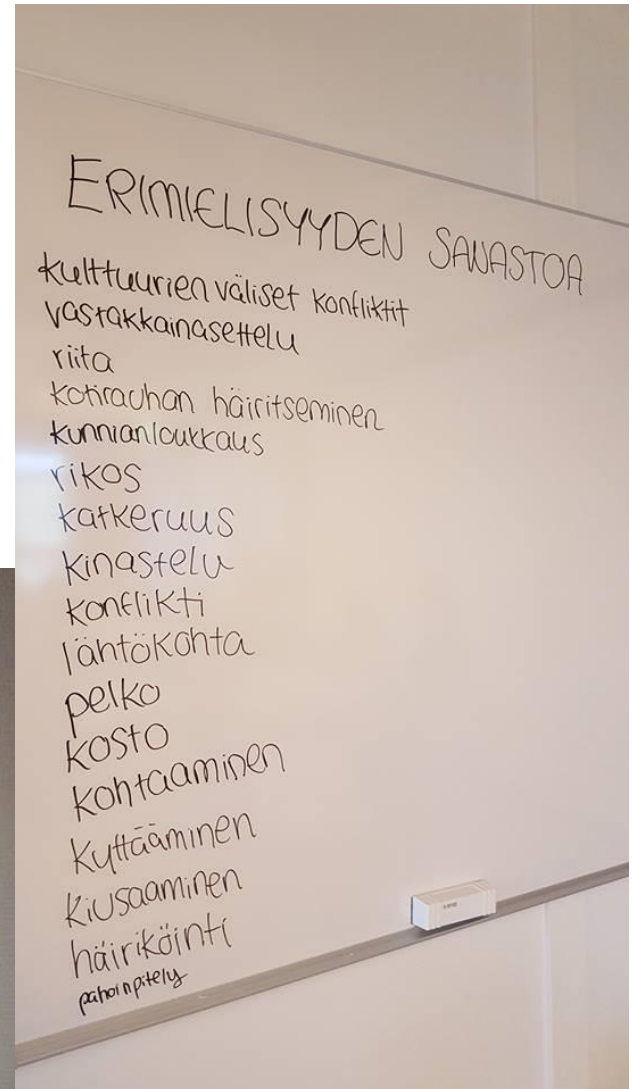 ERIMIELISYYDEN SANASTOA
kulttuurien väliset konfliktit
vastakkainasettelu
riita
kotirauhan häiritseminen
kunnianloukkaus
rikos
katkeruus
kinastelu
konflikti
lähtökohta
pelko
kosto
kohtaaminen
kyttääminen
kiusaaminen
häiriköinti
pahoinpitely